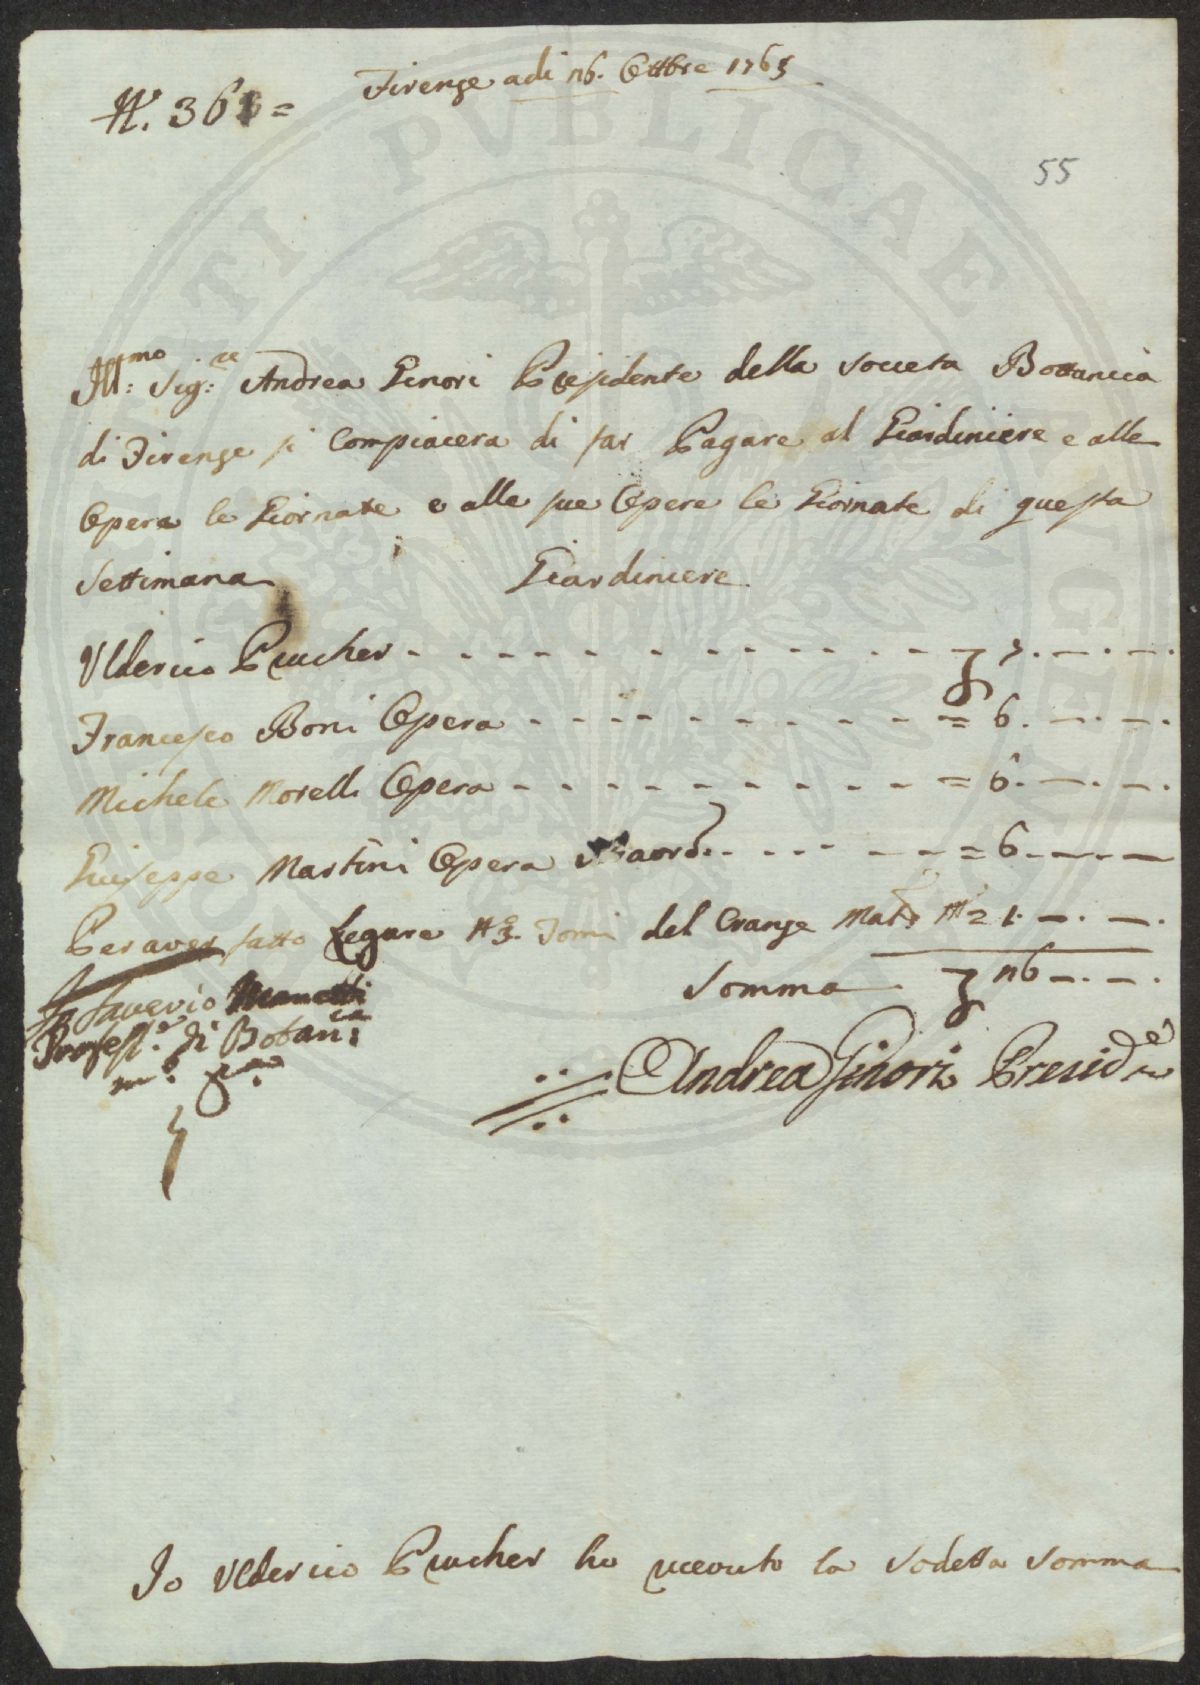 Firenze adi 26. Ottbre 1765
N.° 361=
55
Ill:mo Sig:re Andrea Ginori Presidente della Societa Bottanica
di Firenze si Compiacera di far Pagare al Giardiniere e alle
Opera le Giornate e alle sue Opere le Giornate di questa
Settimana Giardiniere
Ulderico Prucher - - - - - - - - - - - 7. —. —.
Francesco Boni Opera - - - - - - - - - = 6. —. —.
Michele Morelli Opera - - - - - - - - - = 6. —. —.
Giuseppe Martini Opera Straord. - - - - - = 6. —. —
Per aver fatto Legare N.° 3. Tomi del 1. —. —.
Somma 26 —. —.
Saverio Manetti
Profess.e di Botan:ca
m.o p.a
Andrea Ginori Presid.te
Io Ulderico Prucher ho riceuto la Sodetta Somma